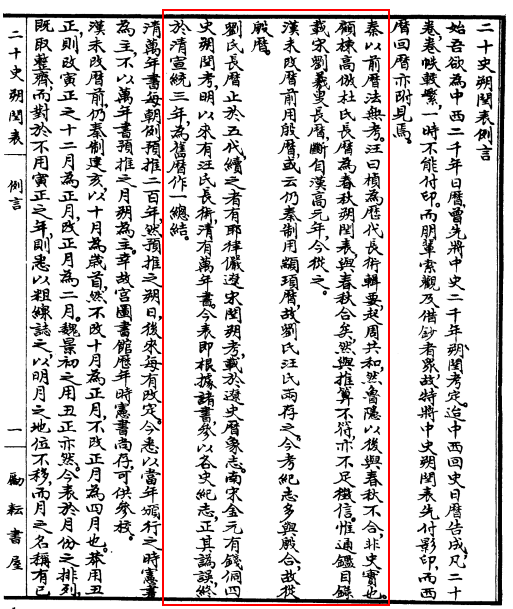 二十史朔閏表例言
始吾欲為中西二千年日曆，嘗先將中史二千年朔閏考定。迨中西回史日曆告成，凡二十
卷，卷帙較繁，一時不能付印。而朋輩索觀及借鈔者眾，故特將中史朔閏表先付影印，而西
曆回曆亦附見焉。
秦以前曆法無考。汪曰楨為歷代長術輯要，起周共和，然魯隱以後與春秋不合，非史實也。
顧棟高倣杜氏長曆為春秋朔閏表，與春秋合矣，然與推算不符，亦不足徵信。惟通鑑目錄
載宋劉羲叟長曆，斷自漢高元年，今從之。
漢未改曆前用殷曆，或云仍秦制用顓頊曆，故劉氏汪氏兩存之。今考紀志多與殷合，故從
殷曆。
劉氏長曆止於五代，續之者有耶律儼遼宋閏朔考，載於遼史曆象志。南宋金元有錢侗四
史朔閏考，明以來有汪氏長術，清有萬年書。今表即根據諸書，參以各史紀志，正其譌誤，終
於清宣統三年，為舊曆作一總結。
清萬年書每朝例預推二百年，然預推之朔日，後來每有改定。今悉以當年頒行之時憲書
為主，不以萬年書預推之月朔為主。幸故宮圖書館歷年時憲書尚存，可供參校。
漢未改曆前，仍秦制建亥，以十月為歲首，然不改十月為正月，不改正月為四月也。莽用丑
正，則改寅正之十二月為正月，改正月為二月。魏景初之用丑正亦然。今表於月份之排列，
既取整齊，而對於不用寅正之年，則悉以粗線誌之，以明月之地位不移，而月之名稱有已
二十史朔閏表
例言
一
勵耘書屋